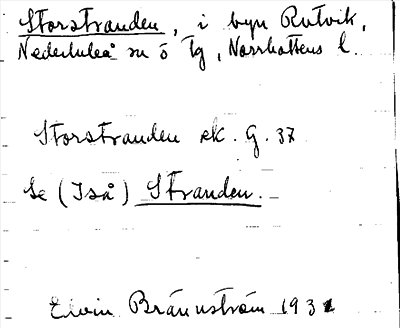 Storstranden, i byn Rutvik,
Nederluleå sn ö tg, Norrbottens l.
Storstranden ek. G. 37
Se (Iså) Stranden.
Edvin Brännström 193